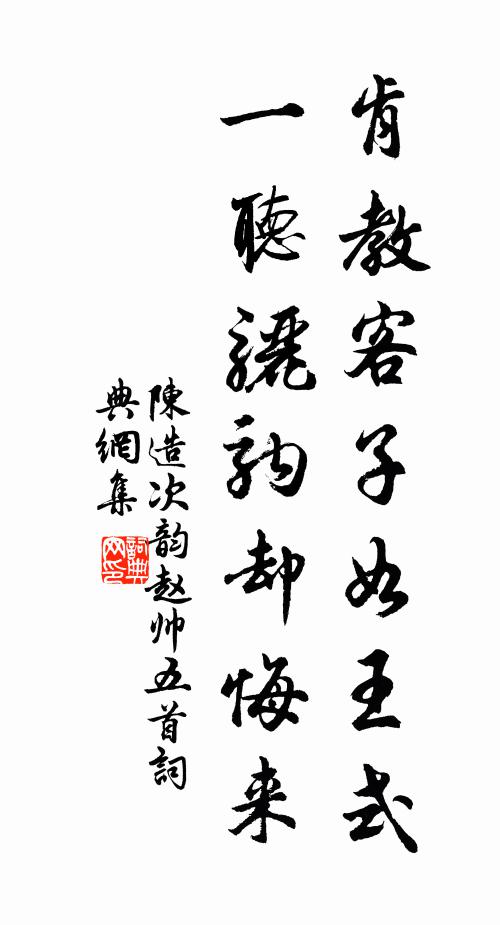 肯教客子如王式
一聽驪駒却悔来
陳造次韵赵帅五首詞
典網集
詞典
网印